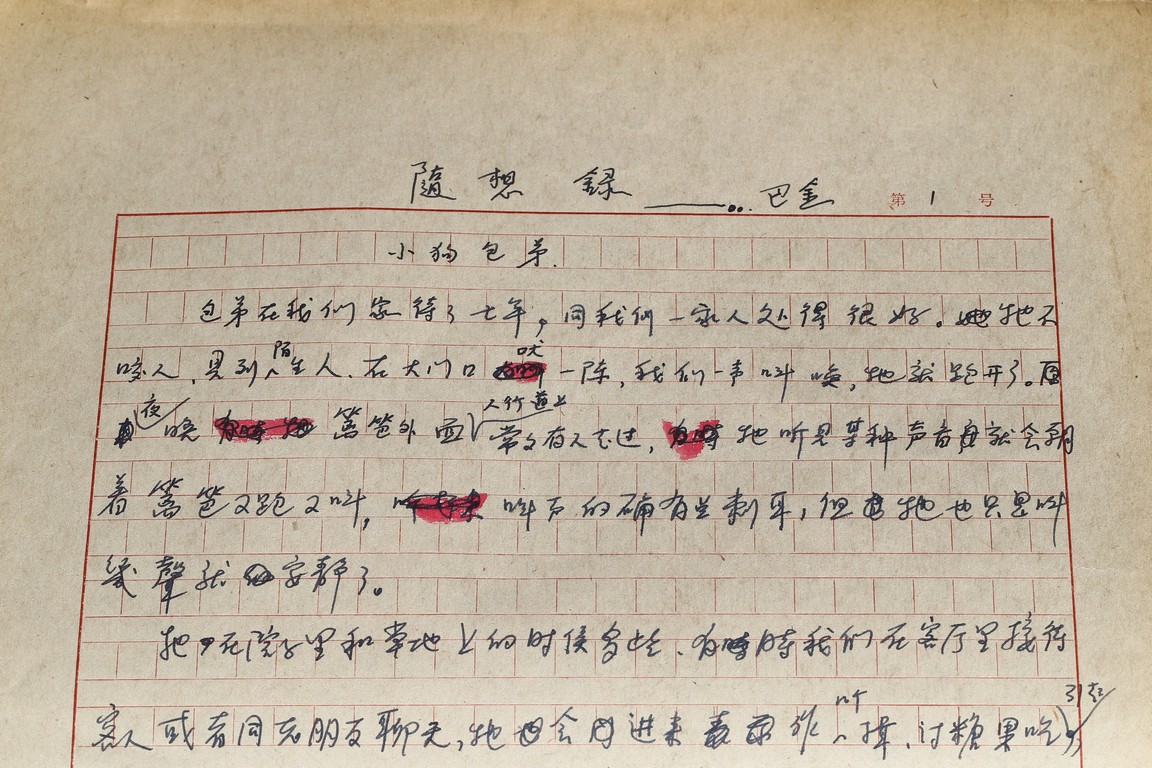 隨想録——..巴金 第1号
小狗包弟.
包弟在我们家待了七年，同我们一家人处得很好。牠不
咬人，見到陌生人，在大门口吠一阵，我们一声叫唤，牠就跑开了。
夜晚篱笆外面人行道上常常有人走过，牠听見某种声音就会朝
着篱笆又跑又叫，叫声的确有点刺耳，但牠也只是叫
幾聲就安静了。
牠在院子里和草地上的时侯多些，有时我们在客厅里接待
客人或者同老朋友聊天，牠会进来作个揖，讨糖果吃，引起